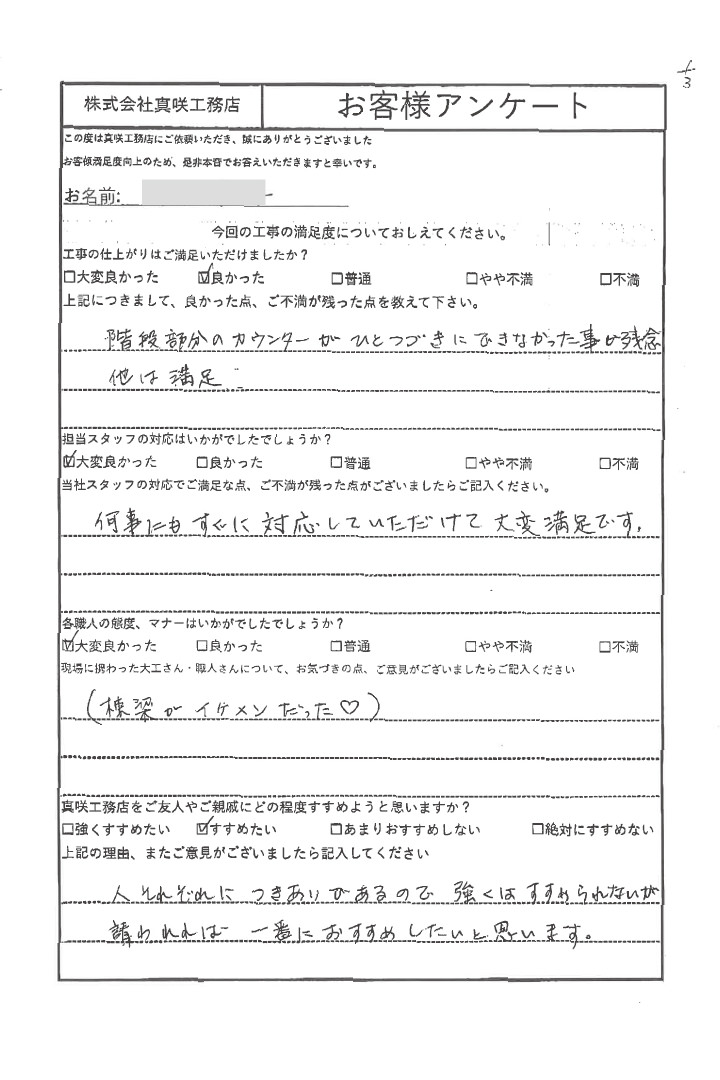 1/3
株式会社真咲工務店
お客様アンケート
この度は真咲工務店にご依頼いただき、誠にありがとうございました
お客様満足度向上のため、是非本音でお答えいただきますと幸いです。
お名前:
今回の工事の満足度についておしえてください。
工事の仕上がりはご満足いただけましたか？
□大変良かった ☑良かった □普通 □やや不満 □不満
上記につきまして、良かった点、ご不満が残った点を教えて下さい。
階段部分のカウンターがひとつづきにできなかった事が残念
他は満足
担当スタッフの対応はいかがでしたでしょうか？
☑大変良かった □良かった □普通 □やや不満 □不満
当社スタッフの対応でご満足な点、ご不満が残った点がございましたらご記入ください。
何事にもすぐに対応していただけて大変満足です。
各職人の態度、マナーはいかがでしたでしょうか？
☑大変良かった □良かった □普通 □やや不満 □不満
現場に携わった大工さん・職人さんについて、お気づきの点、ご意見がございましたらご記入ください
(棟梁がイケメンだった♡)
真咲工務店をご友人やご親戚にどの程度すすめようと思いますか？
□強くすすめたい ☑すすめたい □あまりおすすめしない □絶対にすすめない
上記の理由、またご意見がございましたら記入してください
人それぞれにつきあいがあるので強くはすすめられないが
請われれば一番におすすめしたいと思います。